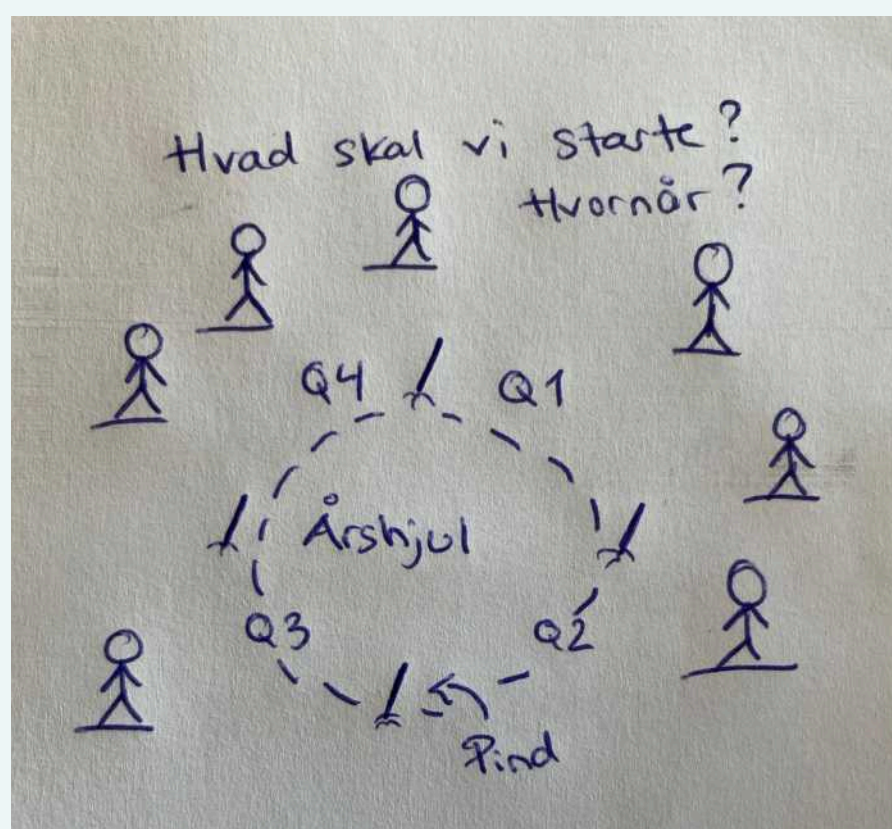 Hvad skal vi starte?
Hvornår?
Q4
Q1
Årshjul
Q3
Q2
Pind